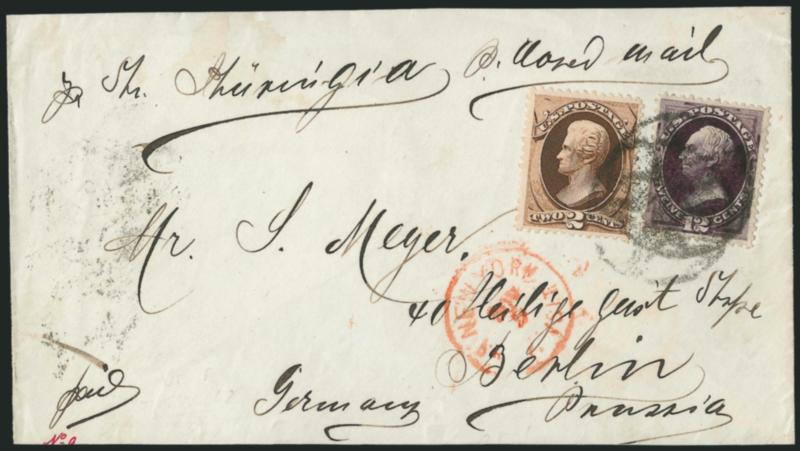 pr Str. Thüringia pr. Closed mail
U.S. POSTAGE
TWO 2 CENTS
U.S. POSTAGE
TWELVE 12 CENTS
Mr. S. Meyer.
NEW YORK
40 Heilige geist Strasse
Berlin
paid
Germany Prussia
No 9